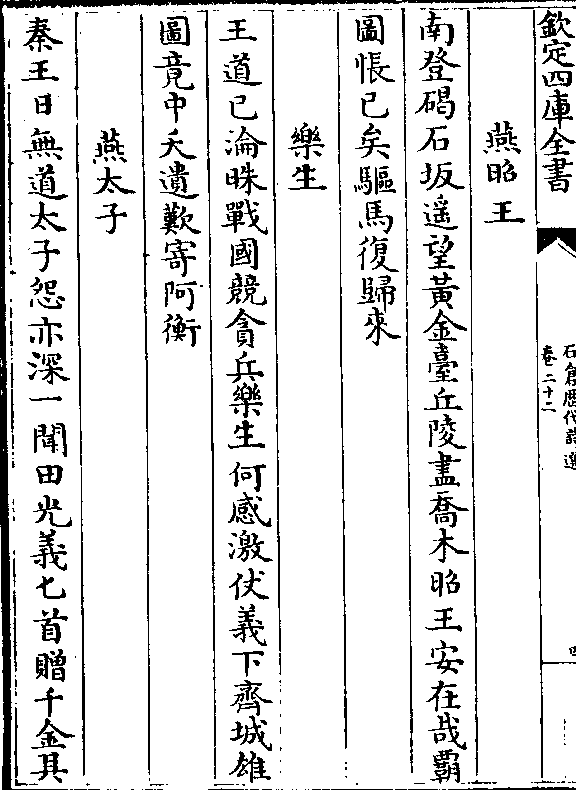 欽定四庫全書
石倉歷代詩選
卷二十二
四
燕昭王
南登碣石坂遥望黃金臺丘陵盡喬木昭王安在哉霸
圖悵已矣驅馬復歸來
樂生
王道已淪昧戰國競貪兵樂生何感激仗義下齊城雄
圖竟中夭遺歎寄阿衡
燕太子
秦王日無道太子怨亦深一聞田光義匕首贈千金其